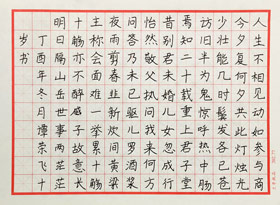 人生不相见动如参与商
今夕复何夕共此灯烛光
少壮能几时鬓发各已苍
访旧半为鬼惊呼热中肠
焉知二十载重上君子堂
昔别君未婚儿女忽成行
怡然敬父执问我来何方
问答乃未已驱儿罗酒浆
夜雨剪春韭新炊间黄粱
主称会面难一举累十觞
十觞亦不醉感子故意长
明日隔山岳世事两茫茫
丁酉年冬月谭荣飞十
岁书